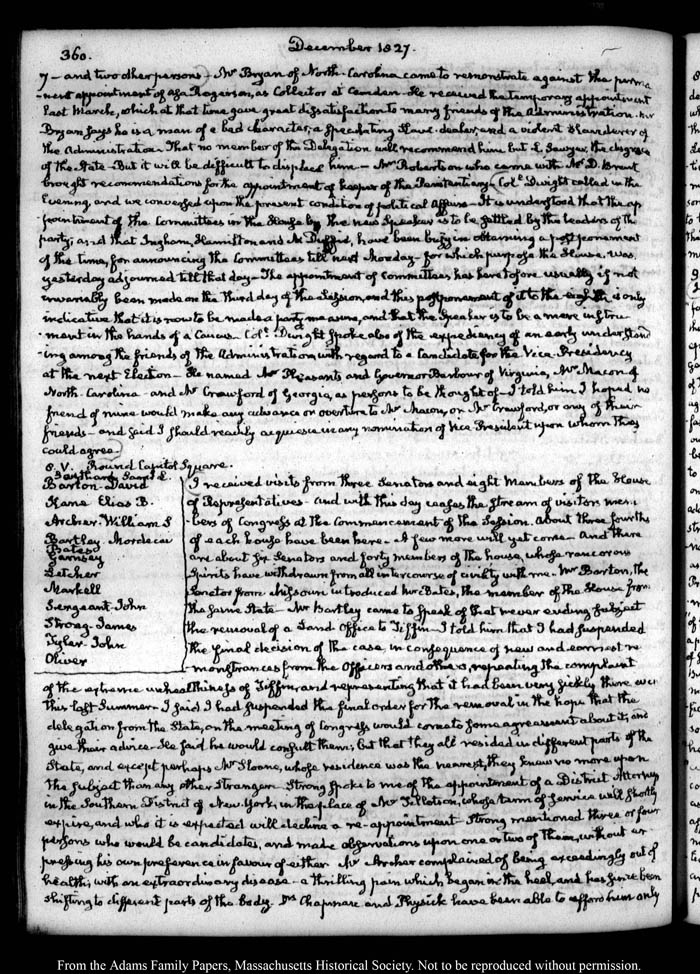 360.
December 1827.
7 - and two other persons - Mr Bryan of North-Carolina came to remonstrate against the perma
-nent appointment of Asa Rogerson, as Collector at Camden. He received the temporary appointment
last March, which at that time gave great dissatisfaction to many friends of the Administration. Mr
Bryan says he is a man of a bad character, a speculating Slave-dealer, and a violent slanderer of
the Administration - That no member of the Delegation will recommend him but L. Sawyer, the disgrace
of the State - But it will be difficult to displace him - Mr Robertson who came with Mr D. Brent
brought recommendations for the appointment of keeper of the Penitentiary - Coll. Dwight called in the
Evening, and we conversed upon the present condition of political affairs - It is understood that the ap
-pointment of the Committees in the House by the new Speaker is to be settled by the leaders of the
party; and that Ingham, Hamilton and McDuffie, have been busy in obtaining a postponement
of the time, for announcing the Committees till next Monday - for which purpose the House, was
yesterday adjourned till that day - The appointment of Committees has heretofore usually if not
invariably been made on the third day of the Session, and this postponement of it to the is only
indicative that it is now to be made a party measure, and that the Speaker is to be a mere instru
-ment in the hands of a Caucus - Coll. Dwight spoke also of the expediency of an early understand
-ing among the friends of the Administration, with regard to a Candidate for the Vice-Presidency
at the next Election - He named Mr Pleasants and Governor Barbour of Virginia, Mr Macon of
North-Carolina - and Mr Crawford of Georgia, as persons to be thought of - I told him I hoped no
friend of mine would make any advance or overture to Mr Macon, or Mr Crawford, or any of their
friends - and said I should readily acquiesce in any nomination of Vice President upon whom they
could agree.
8. V. Round Capitol Square.
Southard Saml L.
Barton-David
Kane Elias B.
Archer-William S
Bartley-Mordecai
Bates
Garnsey
Letcher
Markell
Sergeant-John
Strong-James
Tyler-John
Oliver
I received visits from three Senators and eight Members of the House
of Representatives - and with this day ceases the stream of visitors mem-
bers of Congress at the Commencement of the Session. About three fourths
of each house have been here - A few more will yet come - And there
are about six Senators and forty members of the house, whose rancorous
spirits have withdrawn from all intercourse of civility with me. Mr Barton, the
Senator from Missouri introduced Mr Bates, the member of the House from
the same State - Mr Bartley came to speak of that never ending subject
the removal of a Land Office to Tiffin - I told him that I had suspended
the final decision of the case, in consequence of new and earnest re
-monstrances from the Officers and others, repeating the complaint
of the extreme unhealthiness of Tiffin, and representing that it had been very sickly there even
this last Summer - I said I had suspended the final order for the removal in the hope that the
delegation from the State, on the meeting of Congress would come to some agreement about it, and
give their advice - He said he would consult them; but that they all resided in different parts of the
State, and except perhaps Mr Sloane, whose residence was the nearest, they knew no more upon
the subject than any other stranger. Strong spoke to me of the appointment of a District Attorney
in the Southern District of New-York, in the place of Mr Tillotson, whose term of service will shortly
expire, and who it is expected will decline a re-appointment - Strong mentioned three or four
persons who would be candidates, and made observations upon one or two of them, without ex
pressing his own preference in favour of either - Mr Archer complained of being exceedingly out of
health; with an extraordinary disease - a thrilling pain which began in the heel, and has since been
shifting to different parts of the body. Drs Chapman and Physick have been able to afford him only
From the Adams Family Papers, Massachusetts Historical Society. Not to be reproduced without permission.